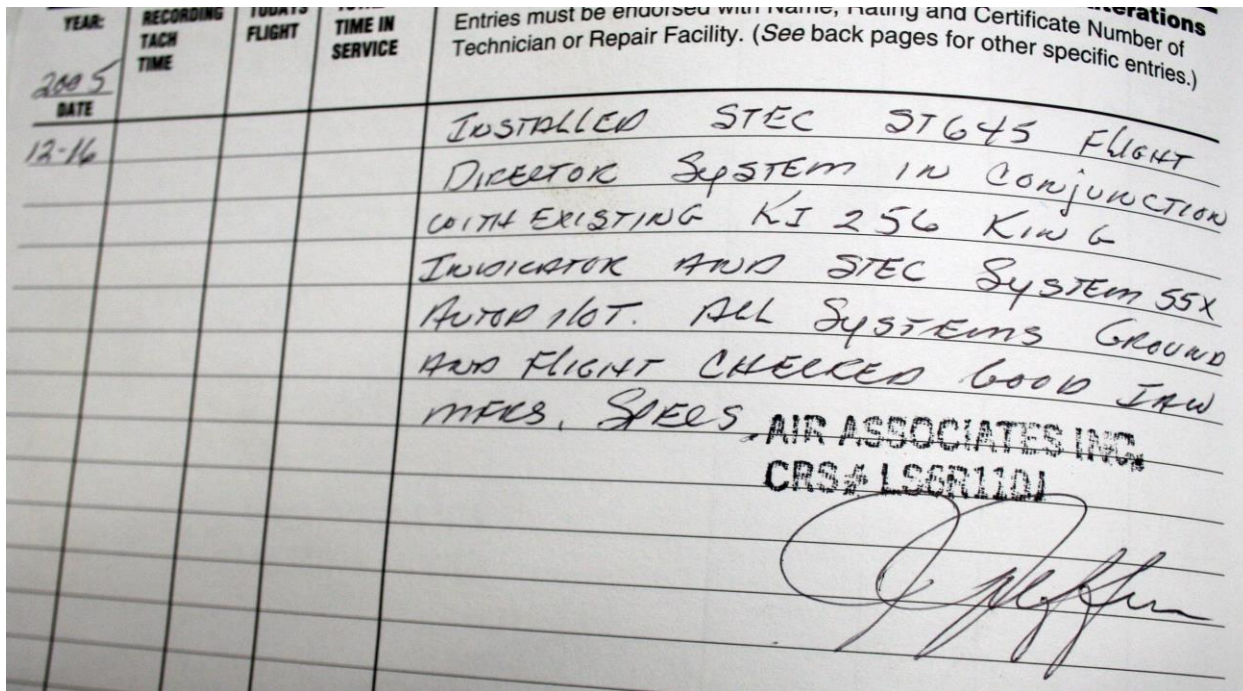 YEAR:
2005
DATE
RECORDING
TACH
TIME
TODAYS
FLIGHT
TIME IN
SERVICE
Entries must be endorsed with Name, Rating and Certificate Number of
Technician or Repair Facility. (See back pages for other specific entries.)
12-16
INSTALLED STEC ST645 FLIGHT
DIRECTOR SYSTEM IN CONJUNCTION
WITH EXISTING KI 256 KING
INDICATOR AND STEC SYSTEM 55X
AUTOPILOT. ALL SYSTEMS GROUND
AND FLIGHT CHECKED GOOD IAW
MFRS. SPECS.
AIR ASSOCIATES INC.
CRS#